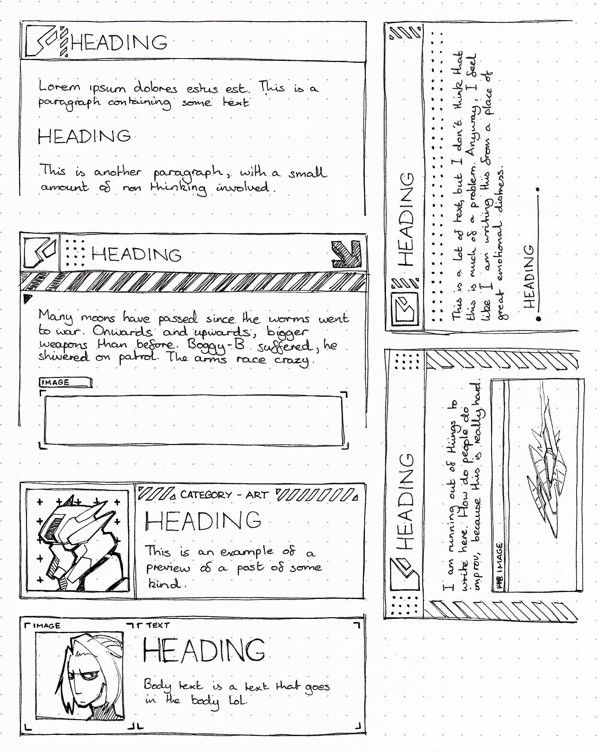 HEADING
Lorem ipsum dolores estus est. This is a
paragraph containing some text
HEADING
This is another paragraph, with a small
amount of non thinking involved.
HEADING
Many moons have passed since the worms went
to war. Onwards and upwards, bigger
weapons than before. Boggy-B suffered, he
shivered on patrol. The arms race crazy.
IMAGE
CATEGORY - ART
HEADING
This is an example of a
preview of a post of some
kind.
IMAGE
TEXT
HEADING
Body text is a text that goes
in the body lol.
HEADING
This is a lot of text, but I don't think that
this is much of a problem. Anyway, I feel
like I am writing this from a place of
great emotional distress.
HEADING
HEADING
I am running out of things to
write here. How do people do
improv, because this is really hard.
IMAGE